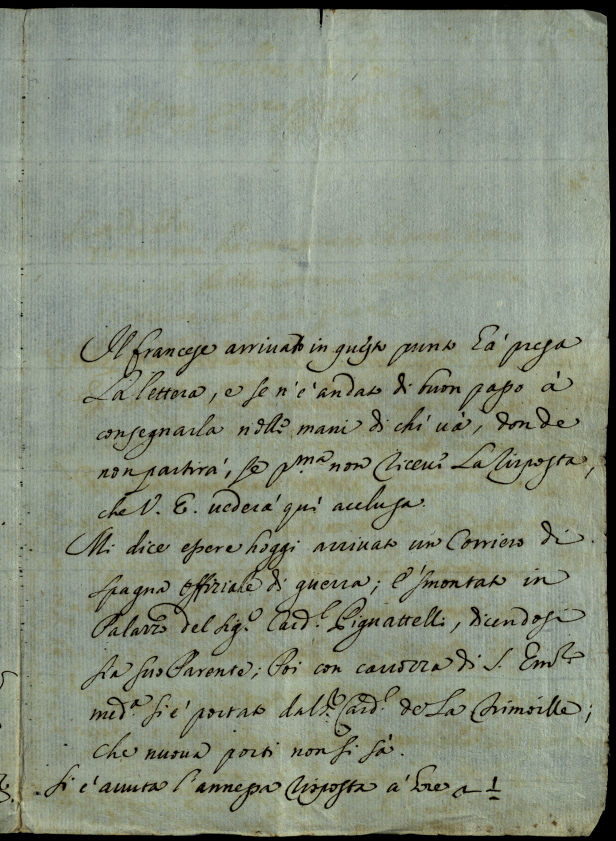 Il francese arrivato in questo punto hà presa
La lettera, e se n'è andato di buon passo à
consegnarla nelle mani di chi và, donde
non partirà, se pma non riceve La risposta,
che V. E. vederà qui acclusa.
Mi dice essere hoggi arrivato un Corriero di
spagna offiziale di guerra; è smontato in
Palazzo del Sigr. Cardl. Pignattelli, dicendosi
sia suo Parente; Poi con carrozza di S. Emza
meda si è portato dal Sr. Cardl. de La Trimoille;
che nuova porti non si sà.
Si è avuta l'annessa risposta à hore 1